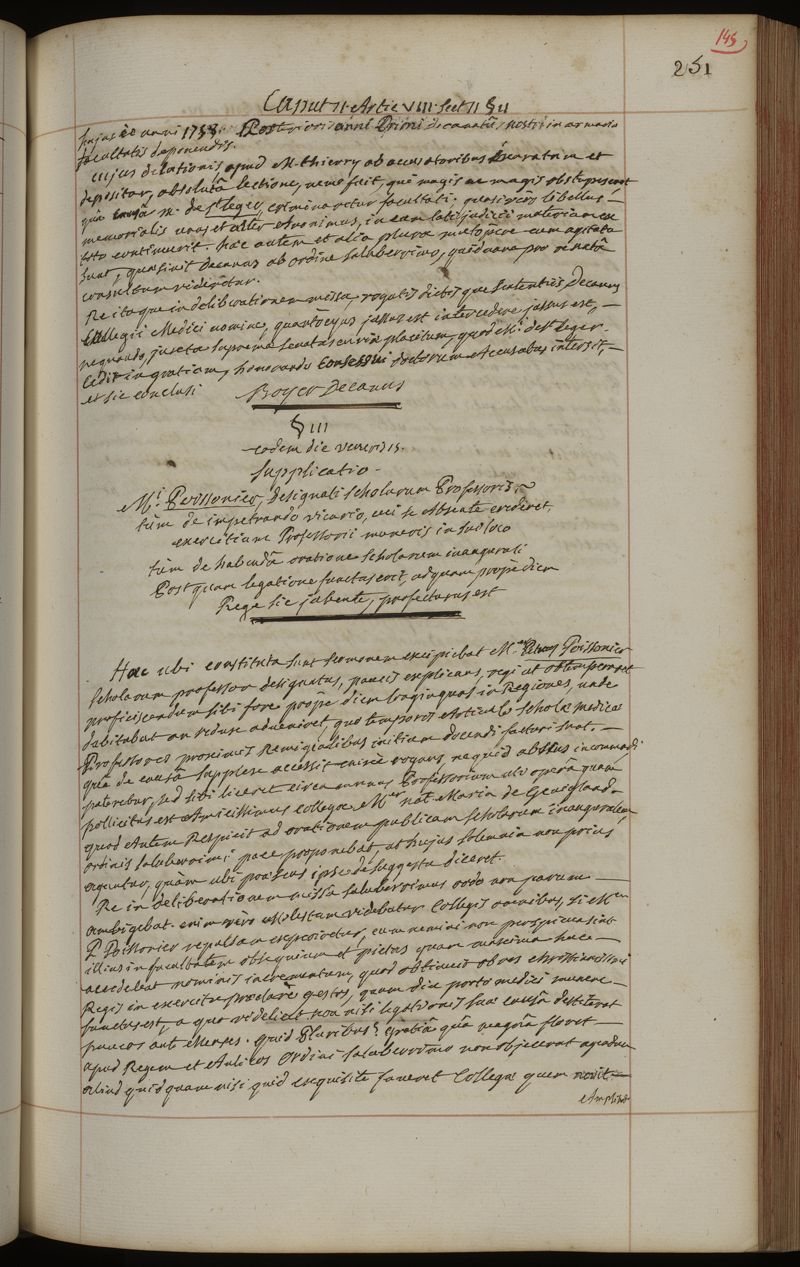 145
251
Caput 11 Artic VIII Sect 11 § 11
hujusce anni 1758. Posterioris anni Primi decanatûs nostri in armario
facultatis deponendis.
cujus delationis, apud M. thierry ab accusatoribus et
depositae, absolutâ lectione, nemo fuit, quî magis ac magis obstupesceret
quâ causâ M. de St Leger, criminaretur facultati. quasi verò libellus
memorialis unus et alter Anonimus, in eam lati judicii materiam ex
toto continuerit. hac autem et alia plura cum agitata
sunt, quaesivit Decanus ab ordine saluberrimo, quid unam pro re natâ
consultum videretur.
Re itaque in deliberationem missa, rogatis dictisque sententiis Decanus
Collegii Medici nomine, quantocyus jussus est intercedere jussus est,
nequando, juxta supremi senatus curiae placitum, quod Mri de St Leger
cedit in gratiam, honorandis Consessui doctorum Accusatus intersit,
et sic conclusi Boyer Decanus
§ III
eodem die veneris 15.
Supplicatio
Mri Poissonier, designati scholarum Professoris,
tum de impetrando vicario, cui se obstante crederet,
exercitium Professorii muneris in sui loco
tum de habendâ oratione scholarum inaugurali
Postquam legatione functus erit, ad quam prope diem
Rege sic jubente, profecturus est
Haec ubi constituta sunt sermonem excipiebat M. Petrus Poissonier
scholarum professor designatus, paucis explicans, regi ut obtemperaret
proficiscendum sibi fore propè diem longinquas in Regiones, unde
dubitabat an redux adveniret quo tempore Articulo Scholae medicae
Professores proximis Remigialibus initium docendi facturi sunt.
quâ de causâ supplex accessit enixè rogans, ne quid absens incommodi
pateretur, sed sibi liceret circa annuas Professorium uti operâ quam
pollicitus est Amicissimus collega Mer nat. Maria de Gevigland
quod Autem Respicit ad orationem publicam scholarum inauguralem,
ordinis saluberrimi pace proponebat, ut hujus solemnia non prius
agentur, quàm ubi praesens ipse de suggestu diceret.
Re in deliberationem missâ saluberrimus ordo non parum
ambigebat. enim vero Molestum videbatur Collegis omnibus, si Mer
P Poissonier repulsam experiretur, cum nemini non perspicua sint
illius in facultatem obsequium et pietas quam maxima huic
accedebat nominis incrementum, quod obtinuit ob res christianissimi
Regis in exercitu praeclarè gestas, quem diu porto medici munere
functus est, a quo videlicet non nisi legationis suae causâ destiterat
paucos ante Menses. quid Pluribus? Gratiâ quâ magnâ floret
apud Regem et Aulicos Ordini saluberrimo non objecerat agendum
aliud quidquam nisi quid exquisite faveret Collegae quem novit
Amplius